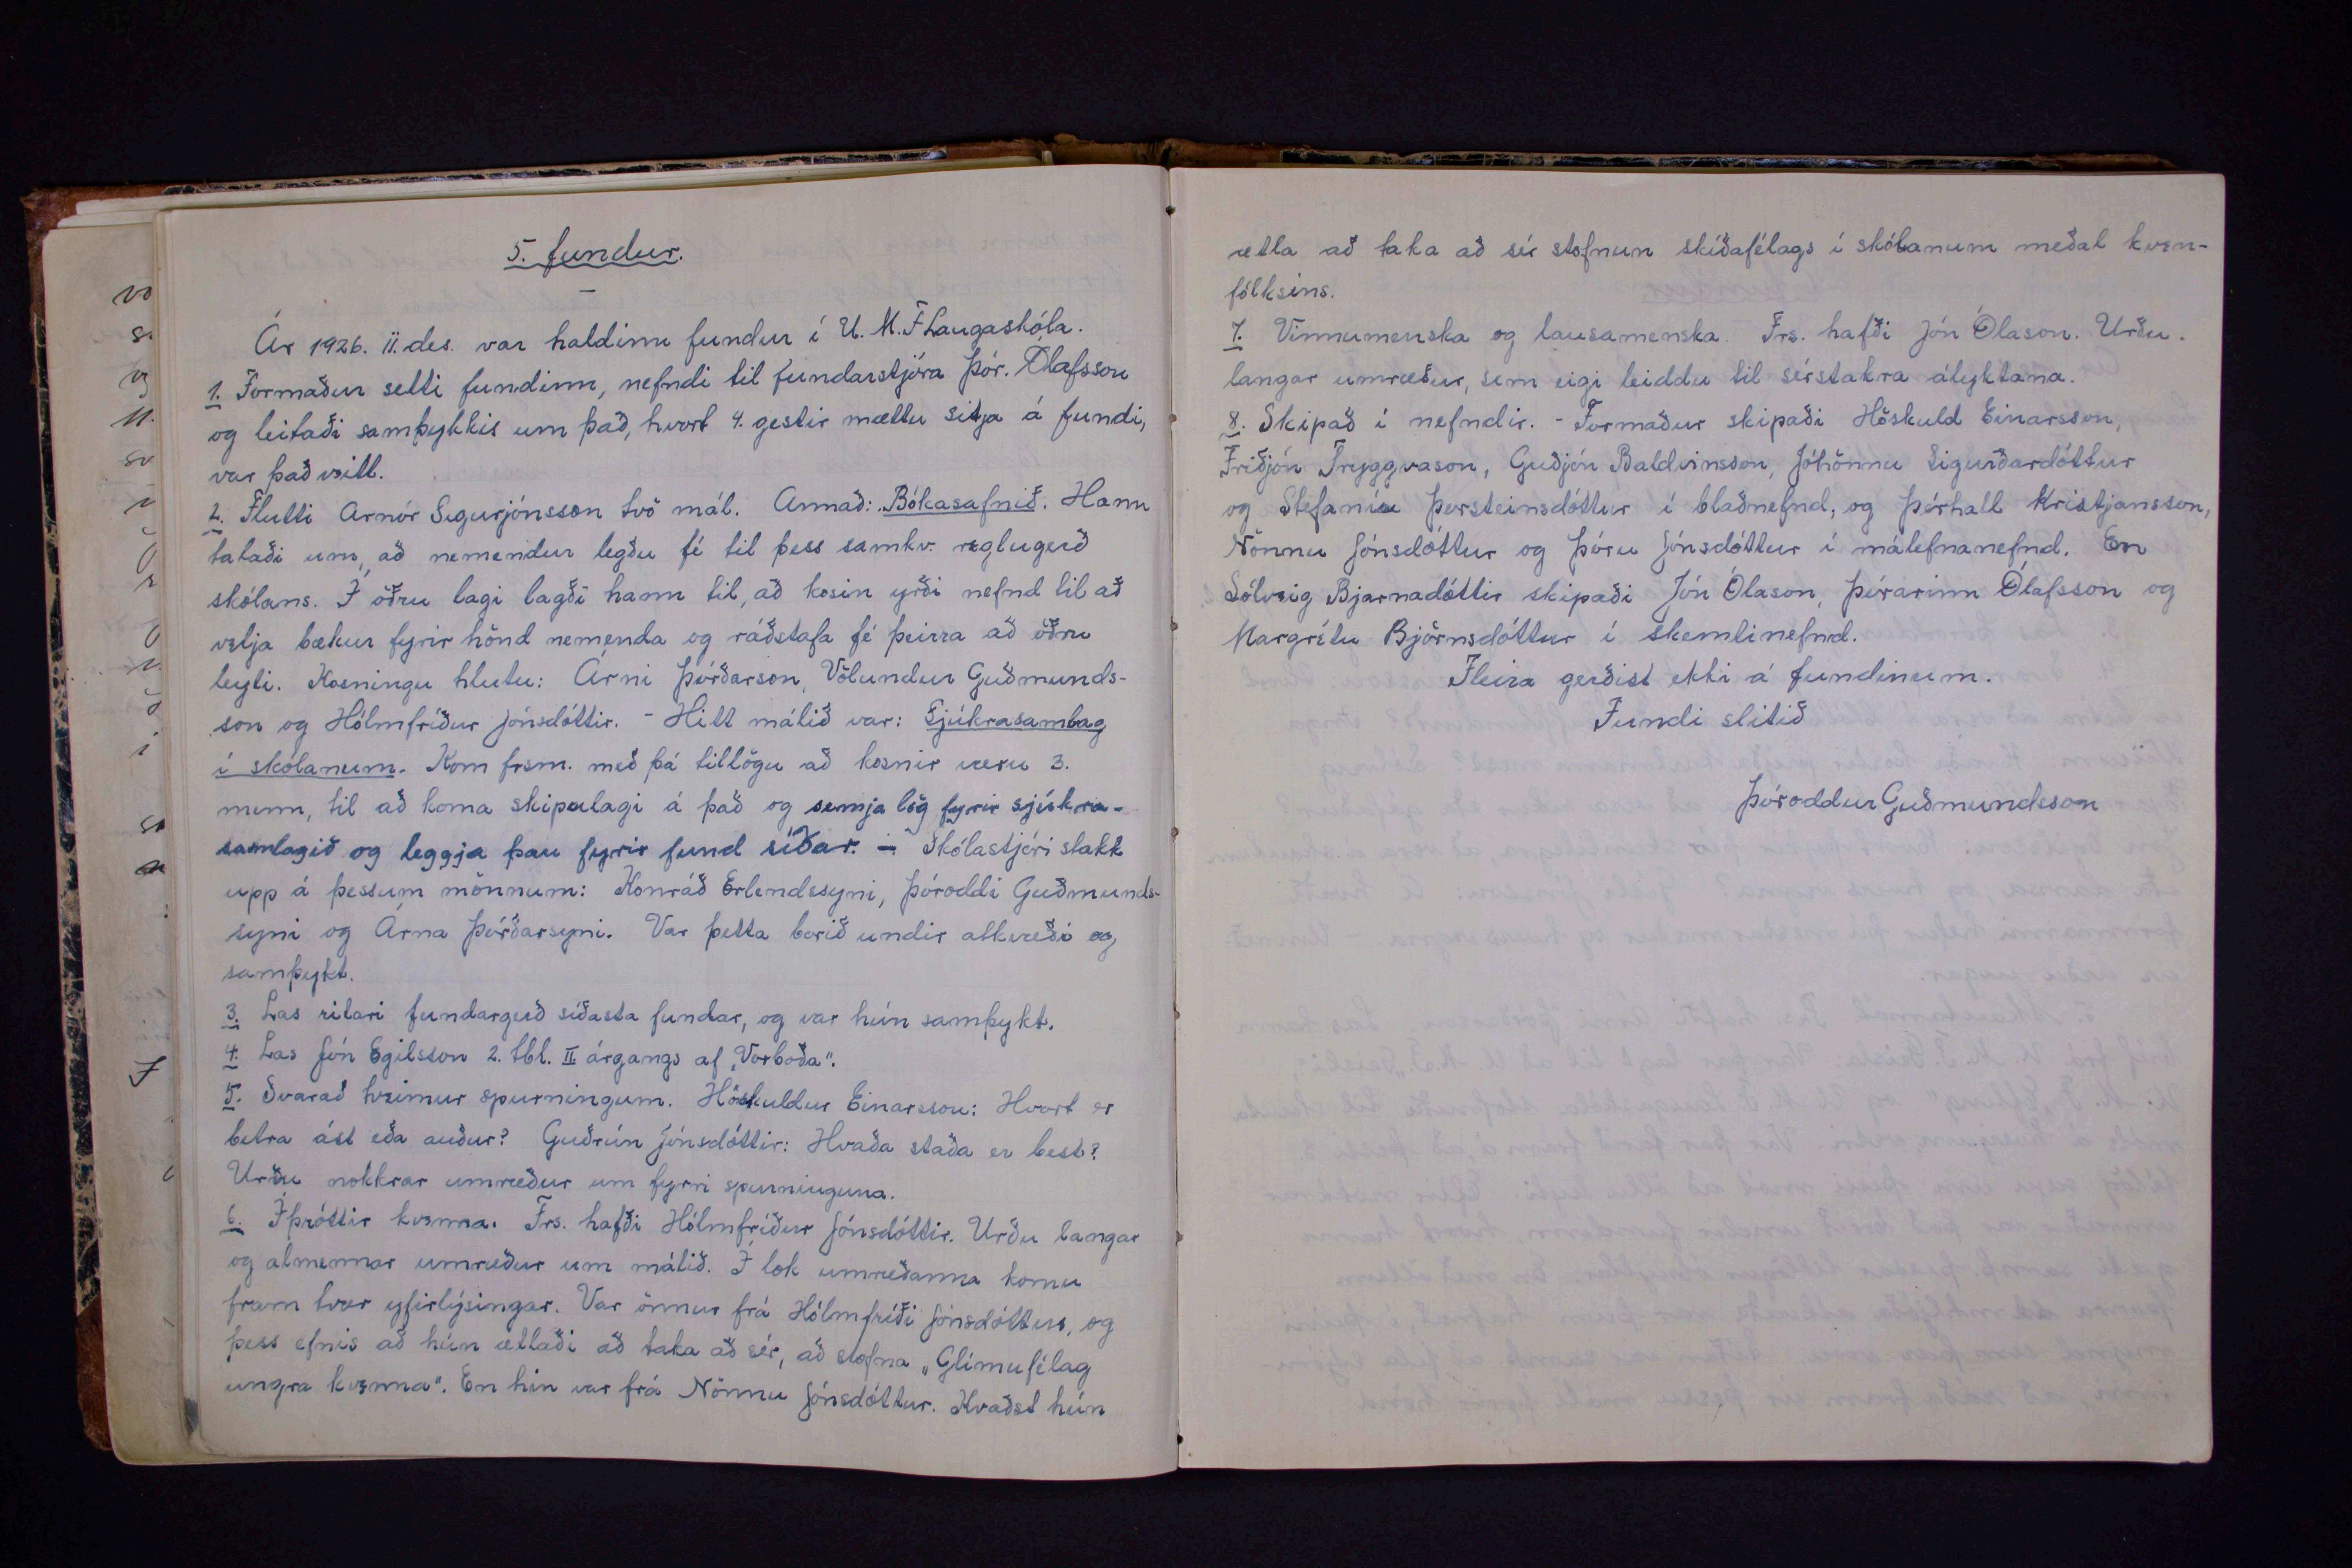 5. fundur.
Ár 1926. 11. des. var haldinn fundur í U. M. F Laugaskóla.
1. Formaður setti fundinn, nefndi til fundarstjóra Þór. Ólafsson
og leitaði samþykkis um það, hvort 4. gestir mættu sitja á fundi,
var það veitt.
2. Flutti Arnór Sigurjónsson tvö mál. Annað: Bókasafnið. Hann
talaði um, að nemendur legðu fé til þess samkv. reglugerð
skólans. Í öðru lagi lagði hann til, að kosin yrði nefnd til að
velja bækur fyrir hönd nemenda og ráðstafa fé þeirra að öðru
leyti. Kosningu hlutu: Árni Þórðarson, Völundur Guðmunds-
son og Hólmfríður Jónsdóttir. - Hitt málið var: Sjúkrasamlag
í skólanum. Kom frsm. með þá tillögu að kosnir væru 3.
menn, til að koma skipulagi á það og semja lög fyrir sjúkra-
samlagið og leggja þau fyrir fund síðar. - Skólastjóri stakk
upp á þessum mönnum: Konráð Erlendssyni, Þóroddi Guðmunds-
syni og Árna Þórðarsyni. Var þetta borið undir atkvæði og
samþykt.
3. Las ritari fundargerð síðasta fundar, og var hún samþykt.
4. Las Jón Egilsson 2. tbl. II árgangs af „Vorboða".
5. Svarað tveimur spurningum. Höskuldur Einarsson: Hvort er
betra ást eða auður? Guðrún Jónsdóttir: Hvaða staða er best?
Urðu nokkrar umræður um fyrri spurninguna.
6. Íþróttir kvenna. Frs. hafði Hólmfríður Jónsdóttir. Urðu langar
og almennar umræður um málið. Í lok umræðanna komu
fram tvær yfirlýsingar. Var önnur frá Hólmfríði Jónsdóttur, og
þess efnis að hún ætlaði að taka að sér, að stofna „Glímufélag
ungra kvenna". En hin var frá Nönnu Jónsdóttur. Kvaðst hún
ætla að taka að sér stofnun skíðafélags í skólanum meðal kven-
fólksins.
7. Vinnumenska og lausamenska. Frs. hafði Jón Ólason. Urðu
langar umræður, sem eigi leiddu til sérstakra ályktana.
8. Skipað í nefndir. - Formaður skipaði Höskuld Einarsson,
Friðjón Tryggvason, Guðjón Baldvinsson, Jóhönnu Sigurðardóttur
og Stefaníu Þorsteinsdóttur í blaðnefnd, og Þórhall Kristjansson,
Nönnu Jónsdóttur og Þóru Jónsdóttur í málefnanefnd. En
Sólveig Bjarnadóttir skipaði Jón Ólason, Þórarinn Ólafsson og
Margrétu Björnsdóttur í skemtinefnd.
Fleira gerðist ekki á fundinum.
Fundi slitið
Þóroddur Guðmundsson